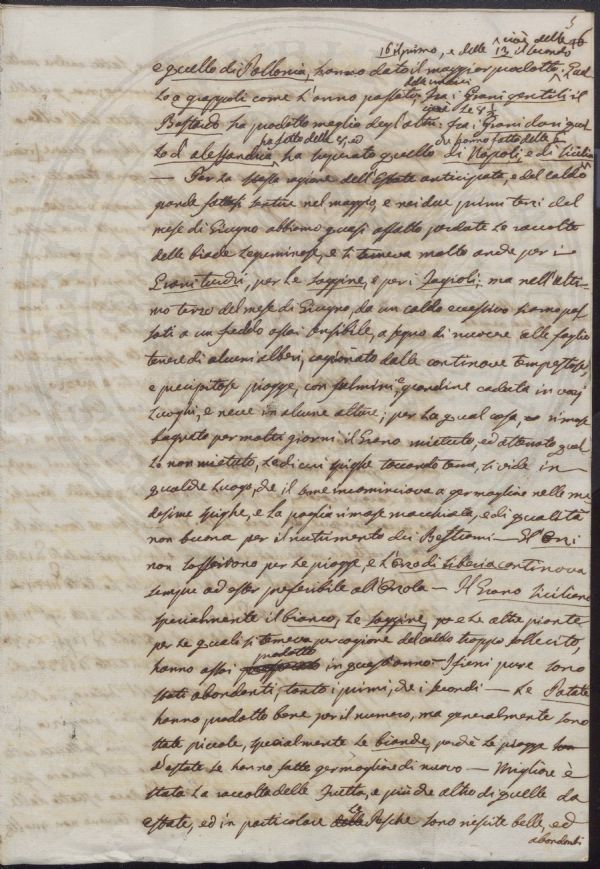 5
cioè delle 46
16 il primo, e delle 13 il secondo
e quello di Pollonia, hanno dato il maggior prodotto.
lo a grappoli come l'anno passato. Fra i Grani gentili il
Bastardo ha prodotto meglio degl'altri: fra i Grani duri quel
ha fatto delle 9, ed che hanno fatto delle
lo d'Alessandria ha superato quello di Napoli, e di Sicilia
— Per la stessa ragione dell'Estate anticipata, e del caldo
grande fattosi sentire nel maggio, e nei due primi terzi del
mese di Giugno abbiamo quasi affatto perdute le raccolte
delle biade leguminose, e si temeva molto anche per i
Grani turchi, per le saggine, e per i Fagioli; ma nell'ulti-
mo terzo del mese di Giugno, da un caldo eccessivo siamo pas
sati a un freddo assai sensibile, a segno di nuocere alle foglie
tenere di alcuni alberi, cagionato dalle continove tempestose,
e precipitose piogge, con fulmini, e grandine caduta in varj
luoghi, e neve in alcune alture; per la qual cosa, rimase
bagnato per molti giorni il Grano mietuto, ed atterrato quel
lo non mietuto, le di cui spighe toccando terra, si vide in
qualche luogo, che il seme incominciava a germogliare nelle me
desime spighe, e la paglia rimase macchiata, e di qualità
non buona per il nutrimento dei Bestiami — Gl'Orzi
non soffrirono per le piogge, e l'Orzo di Siberia continova
sempre ad esser preferibile all'Orzola — Il Grano Siciliano
specialmente il bianco, le saggine, e le altre piante
per le quali si temeva per cagione del caldo troppo sollecito,
prodotto
hanno assai in quest'anno — I fieni pure sono
stati abondanti, tanto i primi, che i secondi — Le Patate
hanno prodotto bene per il numero, ma generalmente sono
state piccole, specialmente le bianche, perchè le piogge
d'estate le hanno fatte germogliare di nuovo — Migliore è
stata la raccolta delle Frutta, e più che altro di quelle da
estate, ed in particolare le Pesche sono riescite belle, ed
abondanti